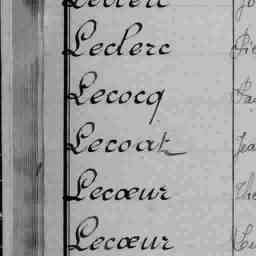 Leclerc
Leclerc
Lecocq
Lecoat
Lecœur
Lecœur